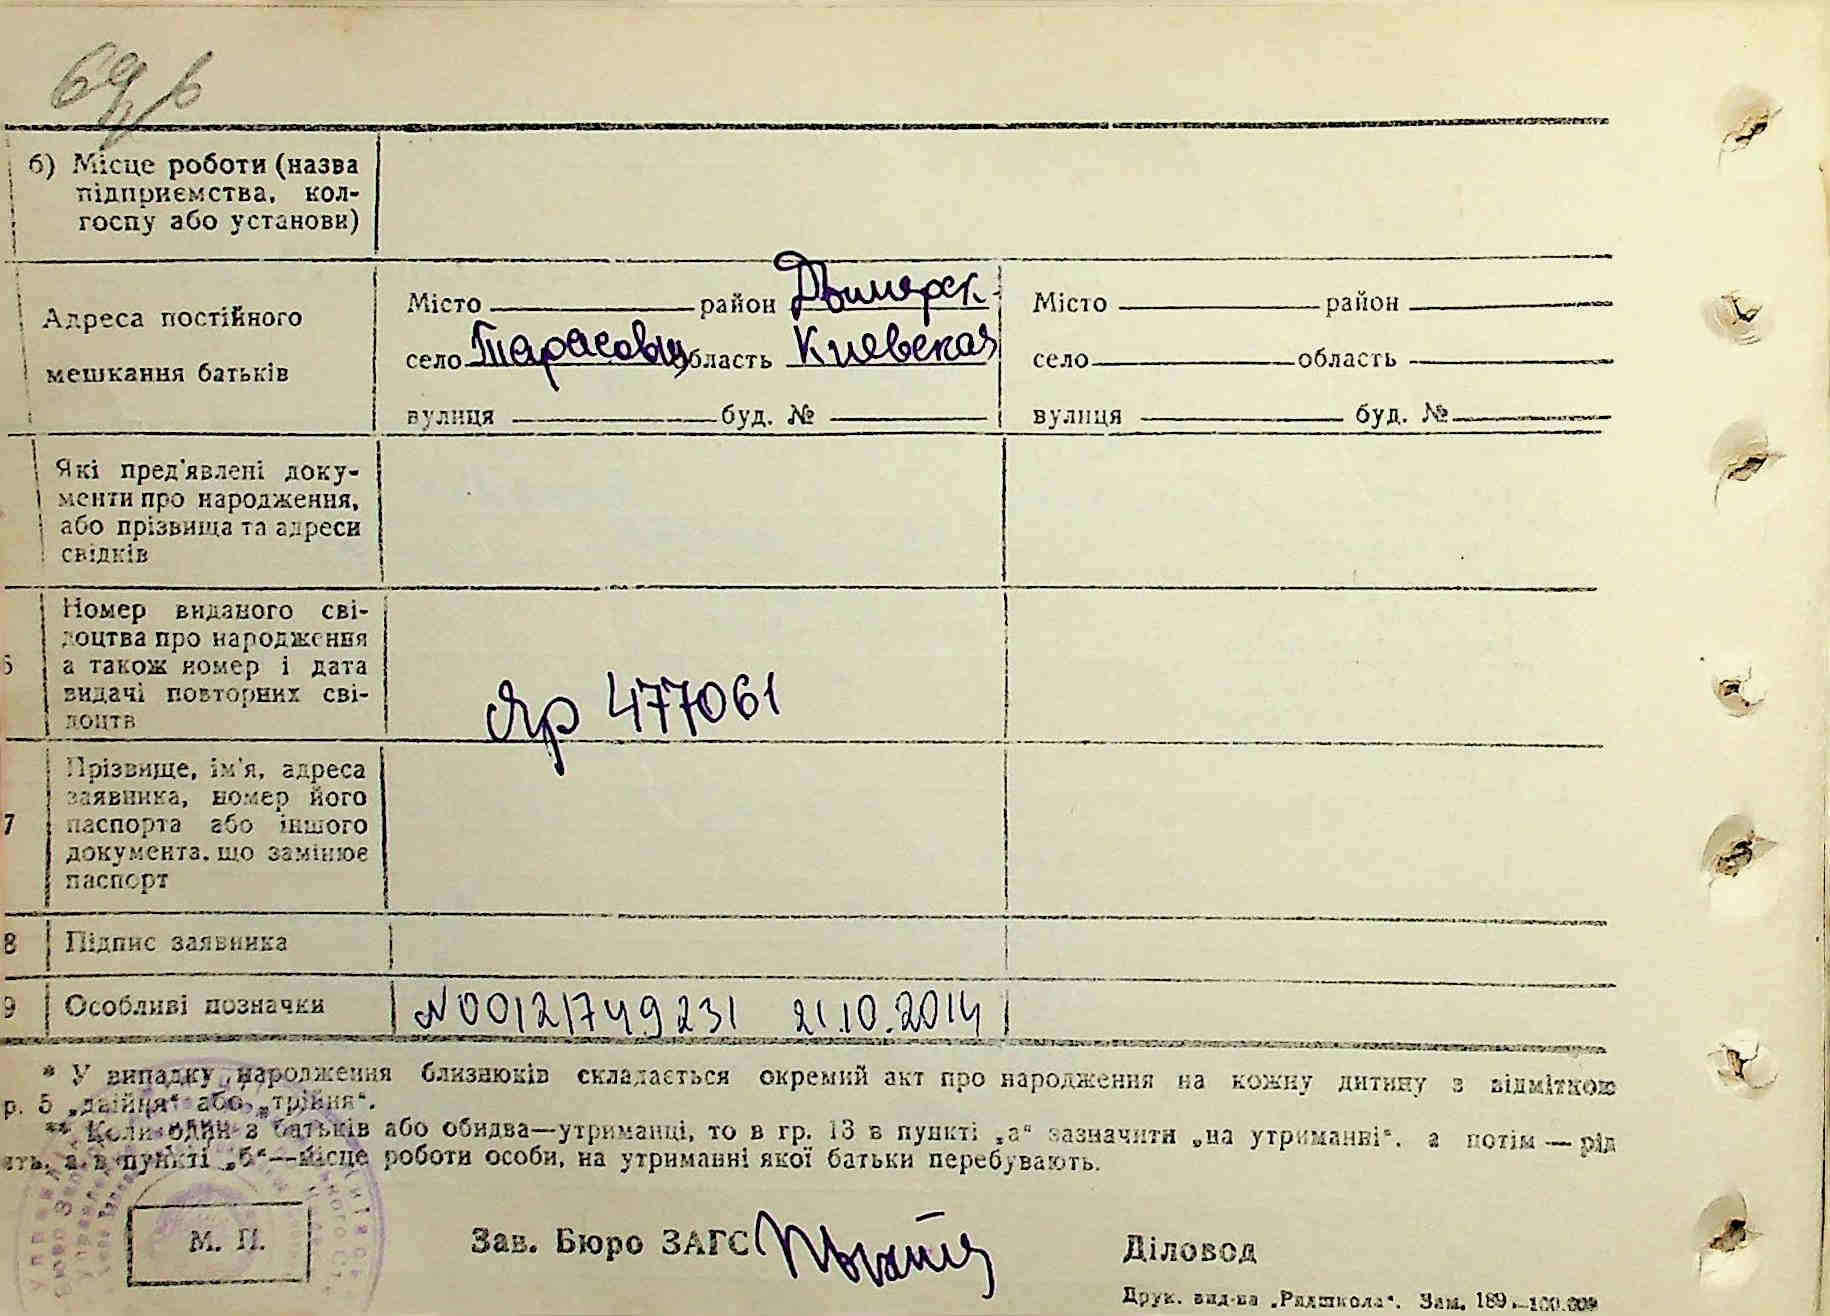 б) Місце роботи (назва
підприємства, кол-
госпу або установи)
Адреса постійного
мешкання батьків
Місто район Дымерск.
село Тарасовщ область Киевская
вулиця буд. №
Місто район
село область
вулиця буд. №
Які пред'явлені доку-
менти про народження,
або прізвища та адреси
свідків
6
Номер виданого сві-
доцтва про народження
а також номер і дата
видачі повторних сві-
доцтв
Яр 477061
7
Прізвище, ім'я, адреса
заявника, номер його
паспорта або іншого
документа, що замінює
паспорт
8 Підпис заявника
9 Особливі позначки N00121749231 21.10.2014
* У випадку народження близнюків складається окремий акт про народження на кожну дитину з відміткою
р. 5 „двійня“ або „трійня“.
** Коли один з батьків або обидва—утриманці, то в гр. 13 в пункті „а“ зазначити „на утриманні“, а потім — рід
ять, а в пункті „б“—місце роботи особи, на утриманні якої батьки перебувають.
М. П.
Зав. Бюро ЗАГС
Діловод
Друк. вид-ва „Радшкола“. Зам. 189.—100.000